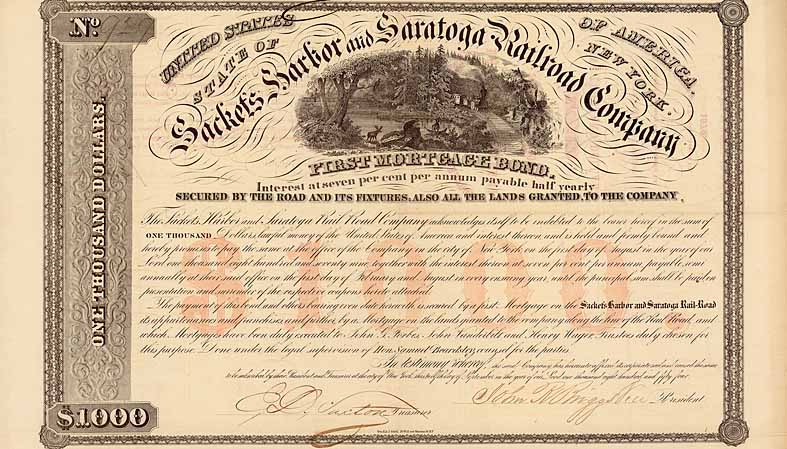 No
UNITED STATES OF AMERICA,
STATE OF NEW YORK.
Sackets Harbor and Saratoga Railroad Company
FIRST MORTGAGE BOND.
Interest at seven per cent per annum payable half yearly
SECURED BY THE ROAD AND ITS FIXTURES; ALSO ALL THE LANDS GRANTED, TO THE COMPANY,
ONE THOUSAND DOLLARS.
$1000
The Sackets Harbor and Saratoga Rail Road Company acknowledges itself to be indebted to the bearer hereof in the sum of
ONE THOUSAND Dollars, lawful money of the United States of America and interest thereon, and is held and firmly bound and
hereby promises to pay the same at the office of the Company in the city of New York on the first day of August in the year of our
Lord one thousand eight hundred and seventy nine, together with the interest thereon at seven per cent per annum, payable semi
annually at their said office on the first day of February and August in each ensuing year, until the principal sum shall be paid on
presentation and surrender of the respective coupons hereto attached.
The payment of this bond and others bearing even date herewith is secured by a first Mortgage on the Sackets Harbor and Saratoga Rail-Road
its appurtenances and franchises and further by a Mortgage on the lands granted to the company along the line of the Rail Road, and
which Mortgages have been duly executed to John S. Forbes, John Vanderbilt and Henry Wager, Trustees duly chosen for
this purpose. Done under the legal supervision of Hon. Samuel Beardsley, counsel for the parties.
In testimony whereof, the said Company has hereunto affixed its corporate seal and caused the same
to be subscribed by their President and Treasurer at the city of New York, this day of September in the year of our Lord one thousand eight hundred and fifty four.
$1000.
Treasurer
President